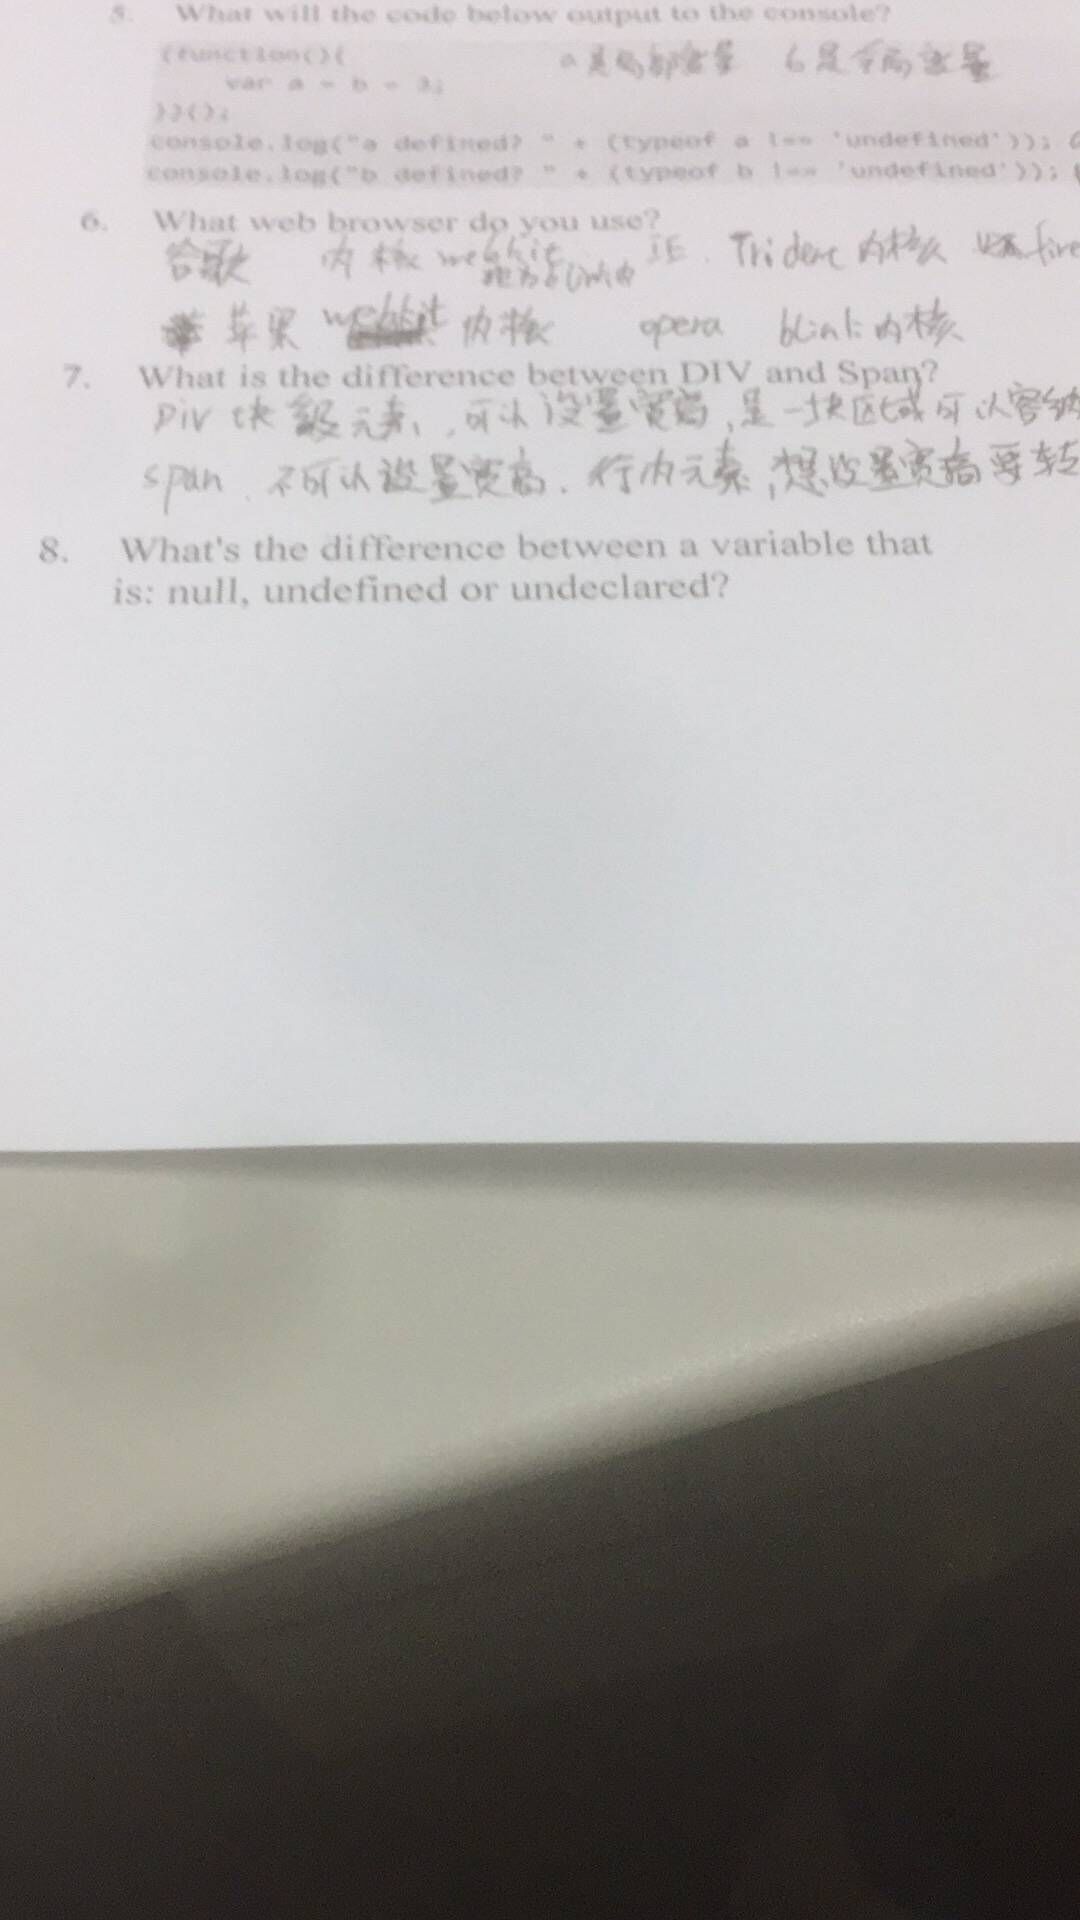 5. What will the code below output to the console?
(function(){ a是局部变量 b是全局变量
var a = b = 3;
})();
console.log("a defined? " + (typeof a !== 'undefined'));
console.log("b defined? " + (typeof b !== 'undefined'));
6. What web browser do you use?
谷歌 内核 webkit IE. Trident 内核 fire
现为blink内
苹果 webkit 内核 opera blink 内核
7. What is the difference between DIV and Span?
Div 块级元素, 可以设置宽高, 是一块区域可以容纳
span. 不可以设置宽高. 行内元素, 想设置宽高要转
8. What's the difference between a variable that
is: null, undefined or undeclared?